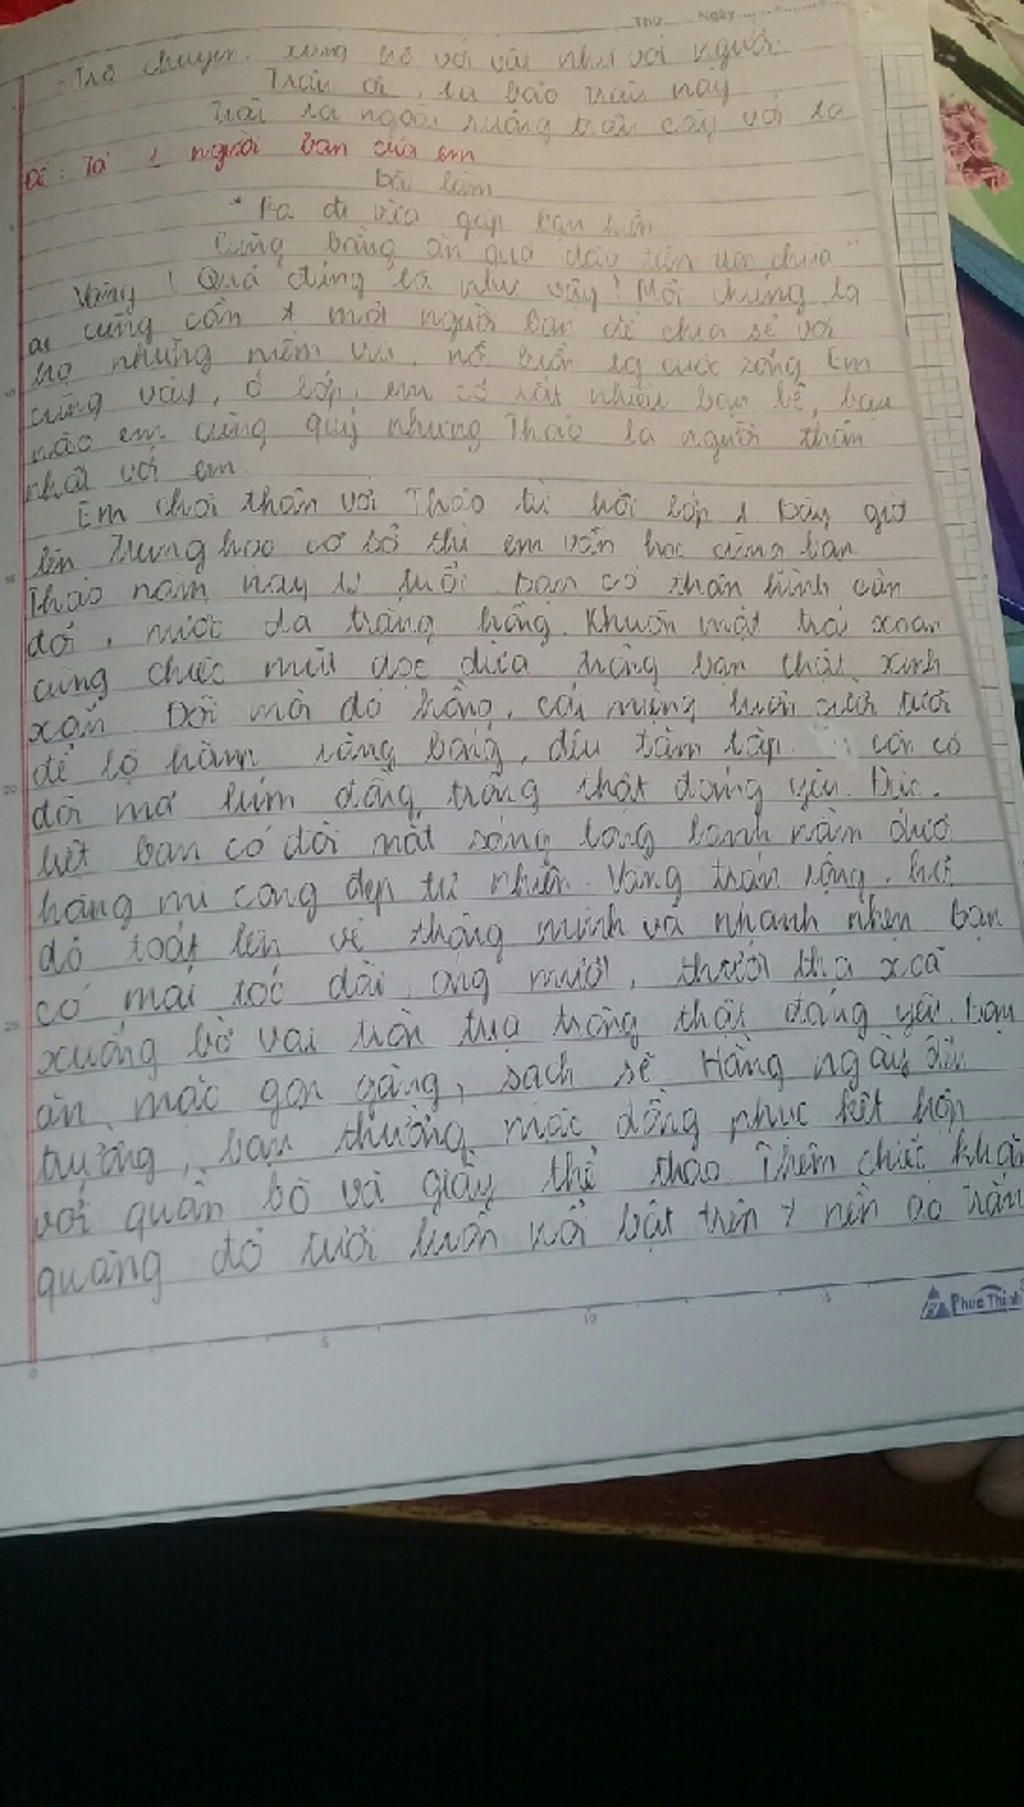 Thứ Ngày
- Trò chuyện, xưng hô với vật như với người
Trâu ơi, ta bảo trâu này
Trâu ra ngoài ruộng trâu cày với ta
Đề: Tả 1 người bạn của em
Bài làm
"Ra đi vừa gặp bạn hiền
Cũng bằng ăn quả đào tiên
Vâng! Quả đúng là như vậy! Mỗi chúng ta
ai cũng cần 1 một người bạn để chia sẻ với
họ những niềm vui, nỗi buồn cuộc sống Em
cũng vậy, ở lớp, em có rất nhiều bạn bè, bạn
nào em cũng quý nhưng Thảo là người thân
nhất với em
Em chơi thân với Thảo từ hồi lớp 1. Bây giờ
lên Trung học cơ sở thì em vẫn học cùng bạn
Thảo năm nay tuổi. Bạn có thân hình cân
đối, nước da trắng hồng. Khuôn mặt trái xoan
cùng chiếc mũi dọc dừa trông bạn thật xinh
xắn. Đôi môi đỏ hồng, cái miệng luôn cười tươi
để lộ hàm răng bóng, đều tăm tắp. còn có
đôi má lúm đồng trông thật đáng yêu. Đặc
biệt bạn có đôi mắt sáng long lanh nằm dưới
hàng mi cong đẹp tự nhiên. Vầng trán rộng,
đó toát lên vẻ thông minh và nhanh nhẹn bạn
có mái tóc dài, óng mượt, thướt tha xoã
xuống bờ vai tròn trịa trông thật đáng yêu. Bạn
ăn mặc gọn gàng, sạch sẽ. Hằng ngày đến
trường, bạn thường mặc đồng phục kết hợp
với quần bò và giầy thể thao. Thêm chiếc khăn
quàng đỏ tươi luôn nổi bật trên nền áo trắng
5
10
15
20
25
0
5
10
15
Phúc Thịnh